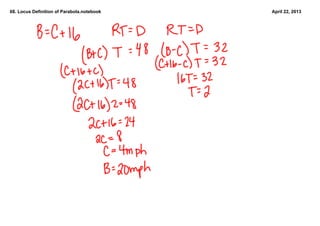 6E. Locus Definition of Parabola.notebook
April 22, 2013
B=C+16 RT=D RT=D
(B+C) T = 48 (B-C) T = 32
(C+16+C) (C+16-C) T = 32
(2C+16)T=48 16T= 32
T=2
(2C+16)2=48
2C+16=24
2C=8
C=4mph
B=20mph